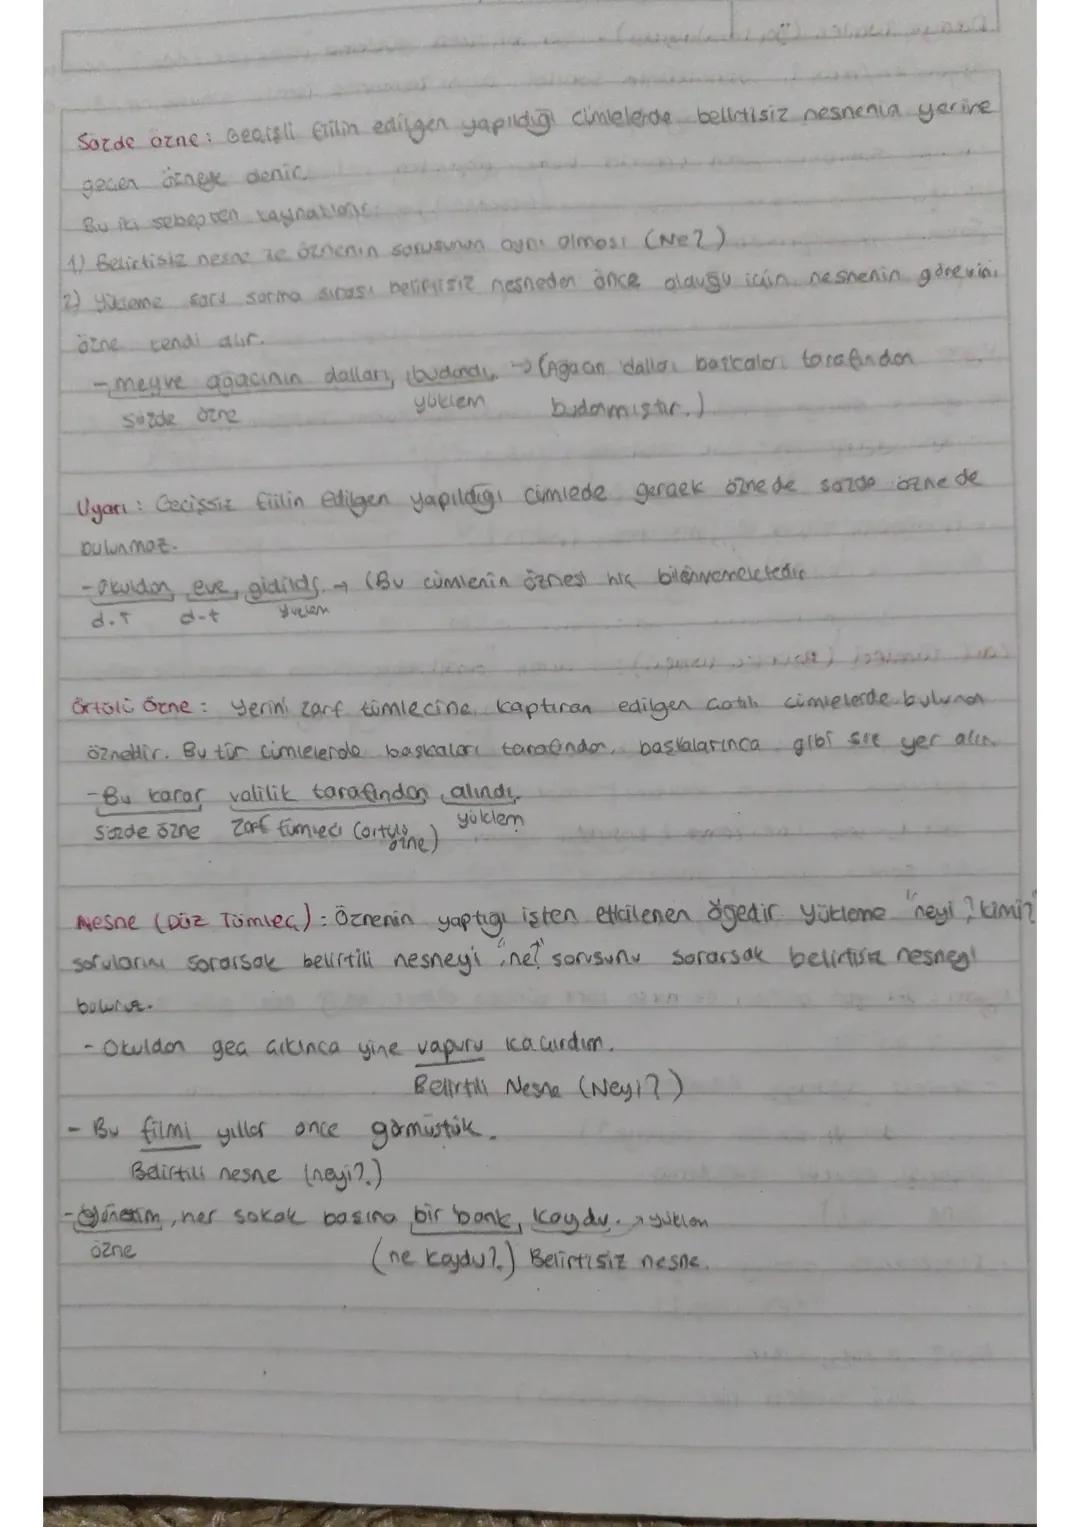 Sözde özne: Geçişli fiilin edilgen yapıldığı cümlelerde belirtisiz nesnenin yerine
geçen özneye denir.
Bu iki sebepten kaynaklanır:
1) Belirtisiz nesne ile öznenin sorusunun aynı olması (Ne?)
2) Yükleme soru sorma sırası belirtisiz nesneden önce olduğu için nesnenin görevini
özne kendi alır.
- meyve ağacının dalları, budandı. → (Ağacın dalları başkaları tarafından
sözde özne yüklem budanmıştır.)
Uyarı: Geçişsiz fiilin edilgen yapıldığı cümlede gerçek özne de sözde özne de
bulunmaz.
- Okuldan eve, gidildi. → (Bu cümlenin öznesi hiç bilinmemektedir
d.T d-t yüklem
Örtülü Özne: Yerini zarf tümlecine kaptıran edilgen çatılı cümlelerde bulunan
öznedir. Bu tür cümlelerde başkaları tarafından, başkalarınca gibi yer alır.
- Bu karar valilik tarafından, alındı.
sözde özne Zarf tümleci (örtülü özne) yüklem
Nesne (Düz Tümleç): Öznenin yaptığı işten etkilenen öğedir. Yükleme "neyi? kimi?"
sorularını sorarsak belirtili nesneyi "ne?" sorusunu sorarsak belirtisiz nesneyi
buluruz.
- Okuldan geç çıkınca yine vapuru kaçırdım.
Belirtili Nesne (Neyi?)
- Bu filmi yıllar önce görmüştük.
Belirtili nesne (neyi?)
- Yönetim, her sokak başına bir bank, koydu. → yüklem
özne (ne koydu?) Belirtisiz nesne.